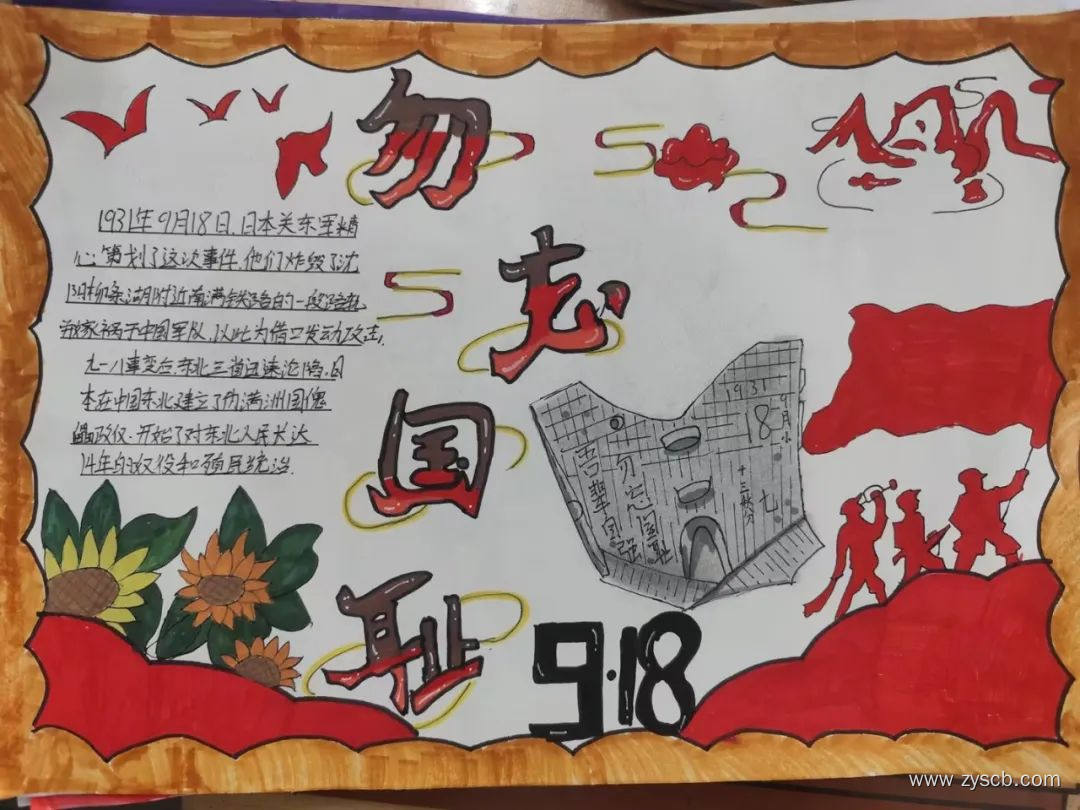 勿忘国耻
1931年9月18日,日本关东军精
心策划了这次事件,他们炸毁了沈
阳柳条湖附近南满铁路的一段路轨
嫁祸于中国军队,以此为借口发动攻击,
九一八事变后,东北三省迅速沦陷,日
本在中国东北建立了伪满洲国傀
儡政权,开始了对东北人民长达
14年的奴役和殖民统治.
1931
9月小
18
十三秋分
九
勿忘国耻
吾辈自强
9·18
www.zyscb.com